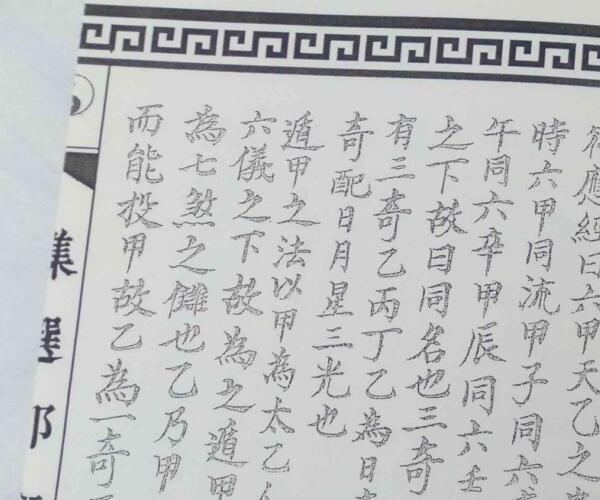 符應經曰六甲天乙之
時六甲同流甲子同六
午同六辛甲辰同六壬
之下故曰同名也三奇
有三奇乙丙丁乙為日
奇配日月星三光也
遁甲之法以甲為太乙
六儀之下故為之遁
為七煞之讎也乙乃甲
而能投甲故乙為一奇